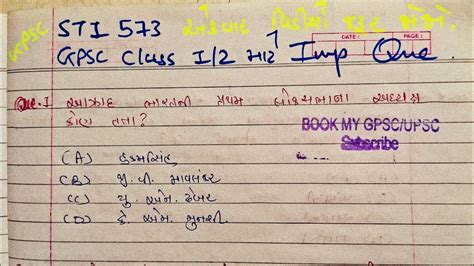 GPSC
STI 573 એકવાર વિડીયો જરૂર જોજો
GPSC Class I/2 માટે Imp Que.
DATE: PAGE:
Que.1 આઝાદ ભારતની પ્રથમ લોકસભાના અધ્યક્ષ
કોણ હતા?
BOOK MY GPSC/UPSC
Subscribe
(A) હુકમસિંહ
(B) જી. વી. માવલંકર
(C) યુ. એન. ઢેબર
(D) કે. એમ. મુનશી